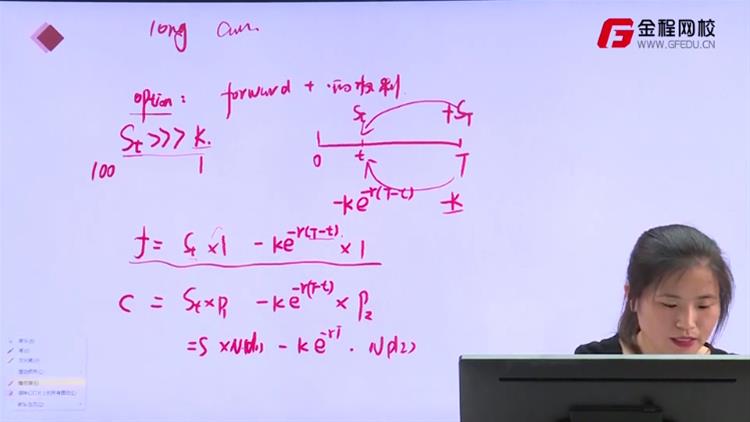 金程网校
WWW.GFEDU.CN
long
option: forward + 可放弃权利
S_t >>> K
100 1
S_t +S_T
0 t T
-Ke^{-r(T-t)} -K
f = S_t×1 - Ke^{-r(T-t)}×1
C = S_t×P_1 - Ke^{-r(T-t)}×P_2
=S×N(d_1) - Ke^{-rT}·N(d_2)